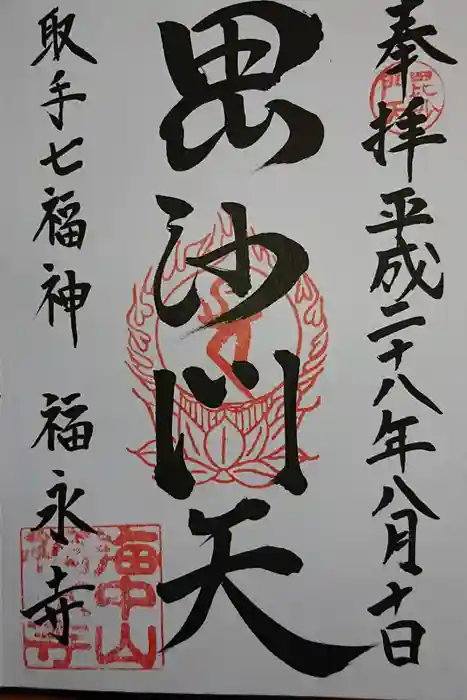 奉拝 平成二十八年八月十日
毘沙門天
取手七福神 福永寺
毘沙門天
海中山